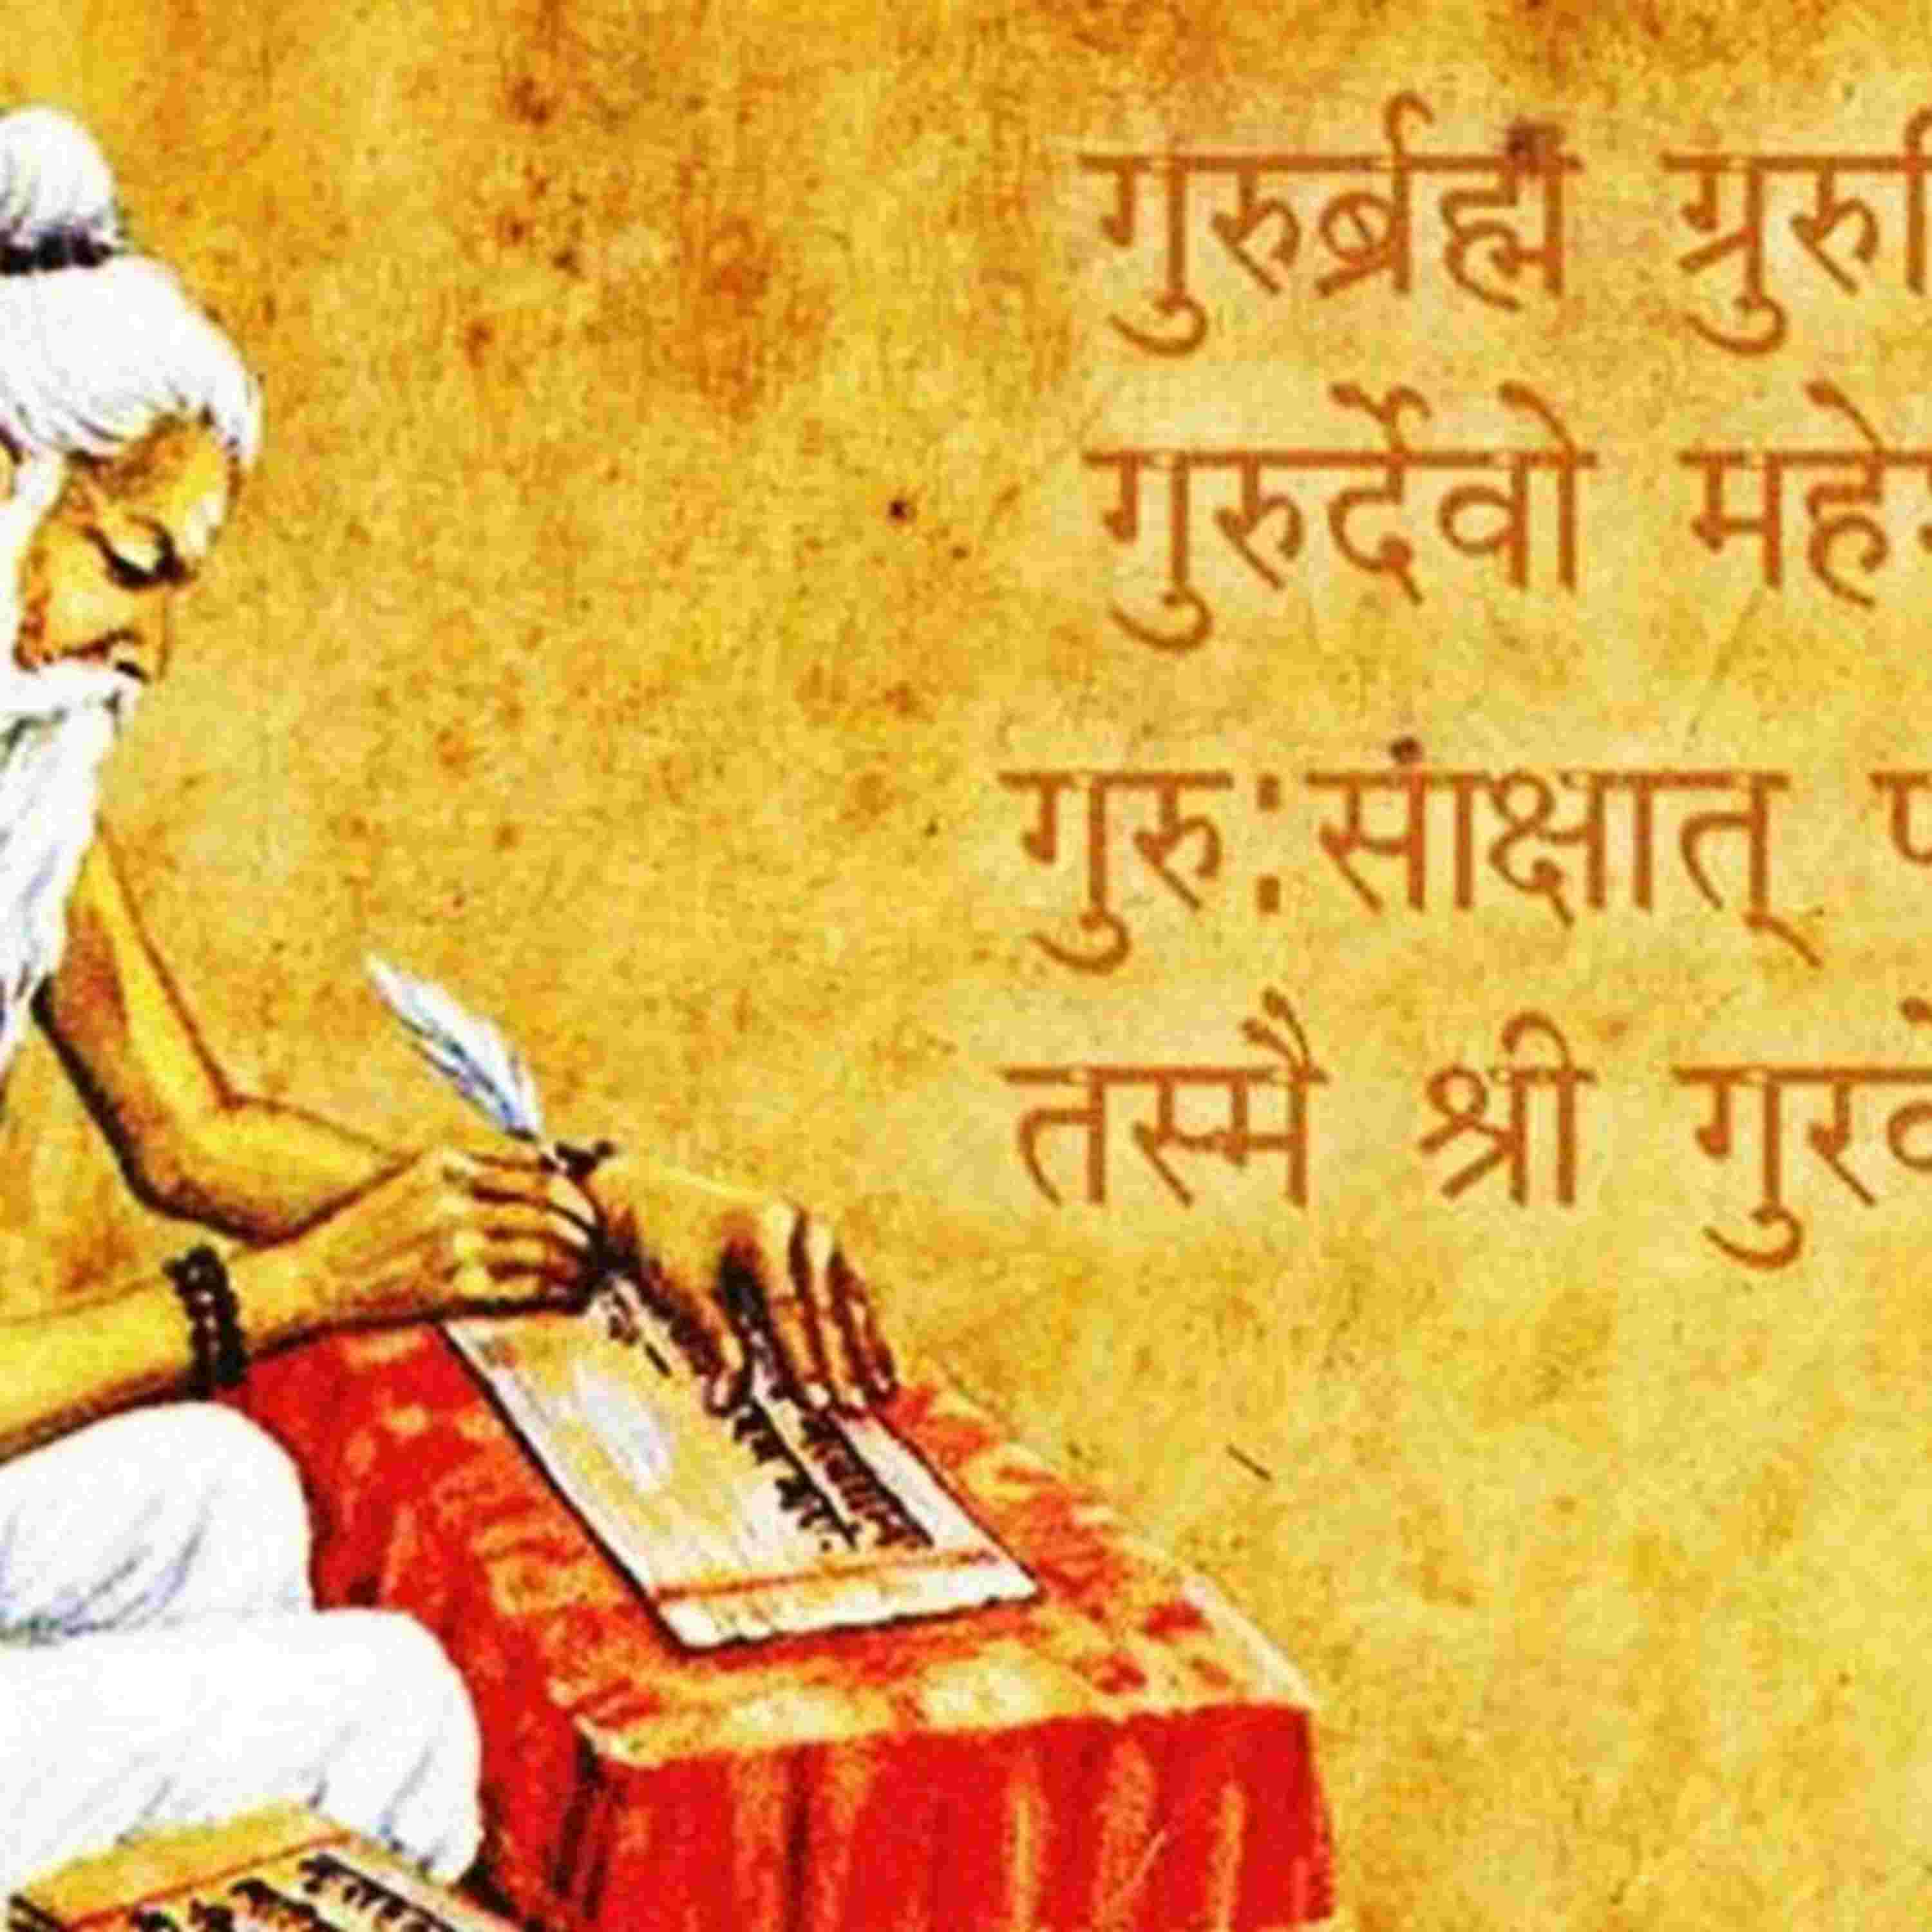 गुरुर्ब्रह्मँ ग्रुरु
गुरुर्देवो महे
गुरु:सांक्षात् प
तस्मै श्री गुरवे